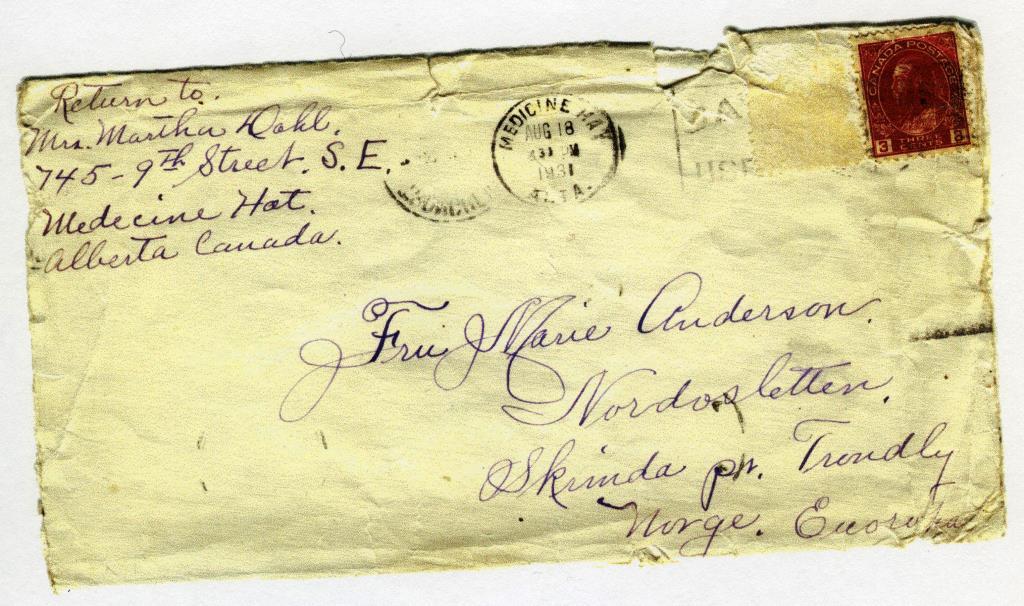 Return to.
Mrs. Martha Dahl.
745-9th Street. S.E.
Medecine Hat.
Alberta Canada.
MEDICINE HAT
AUG 18
PM
1931
ALTA.
USE
CANADA POSTAGE
3 CENTS 3
Fru Marie Anderson.
Nordosletten.
Skrinda pr. Trondly
Norge.